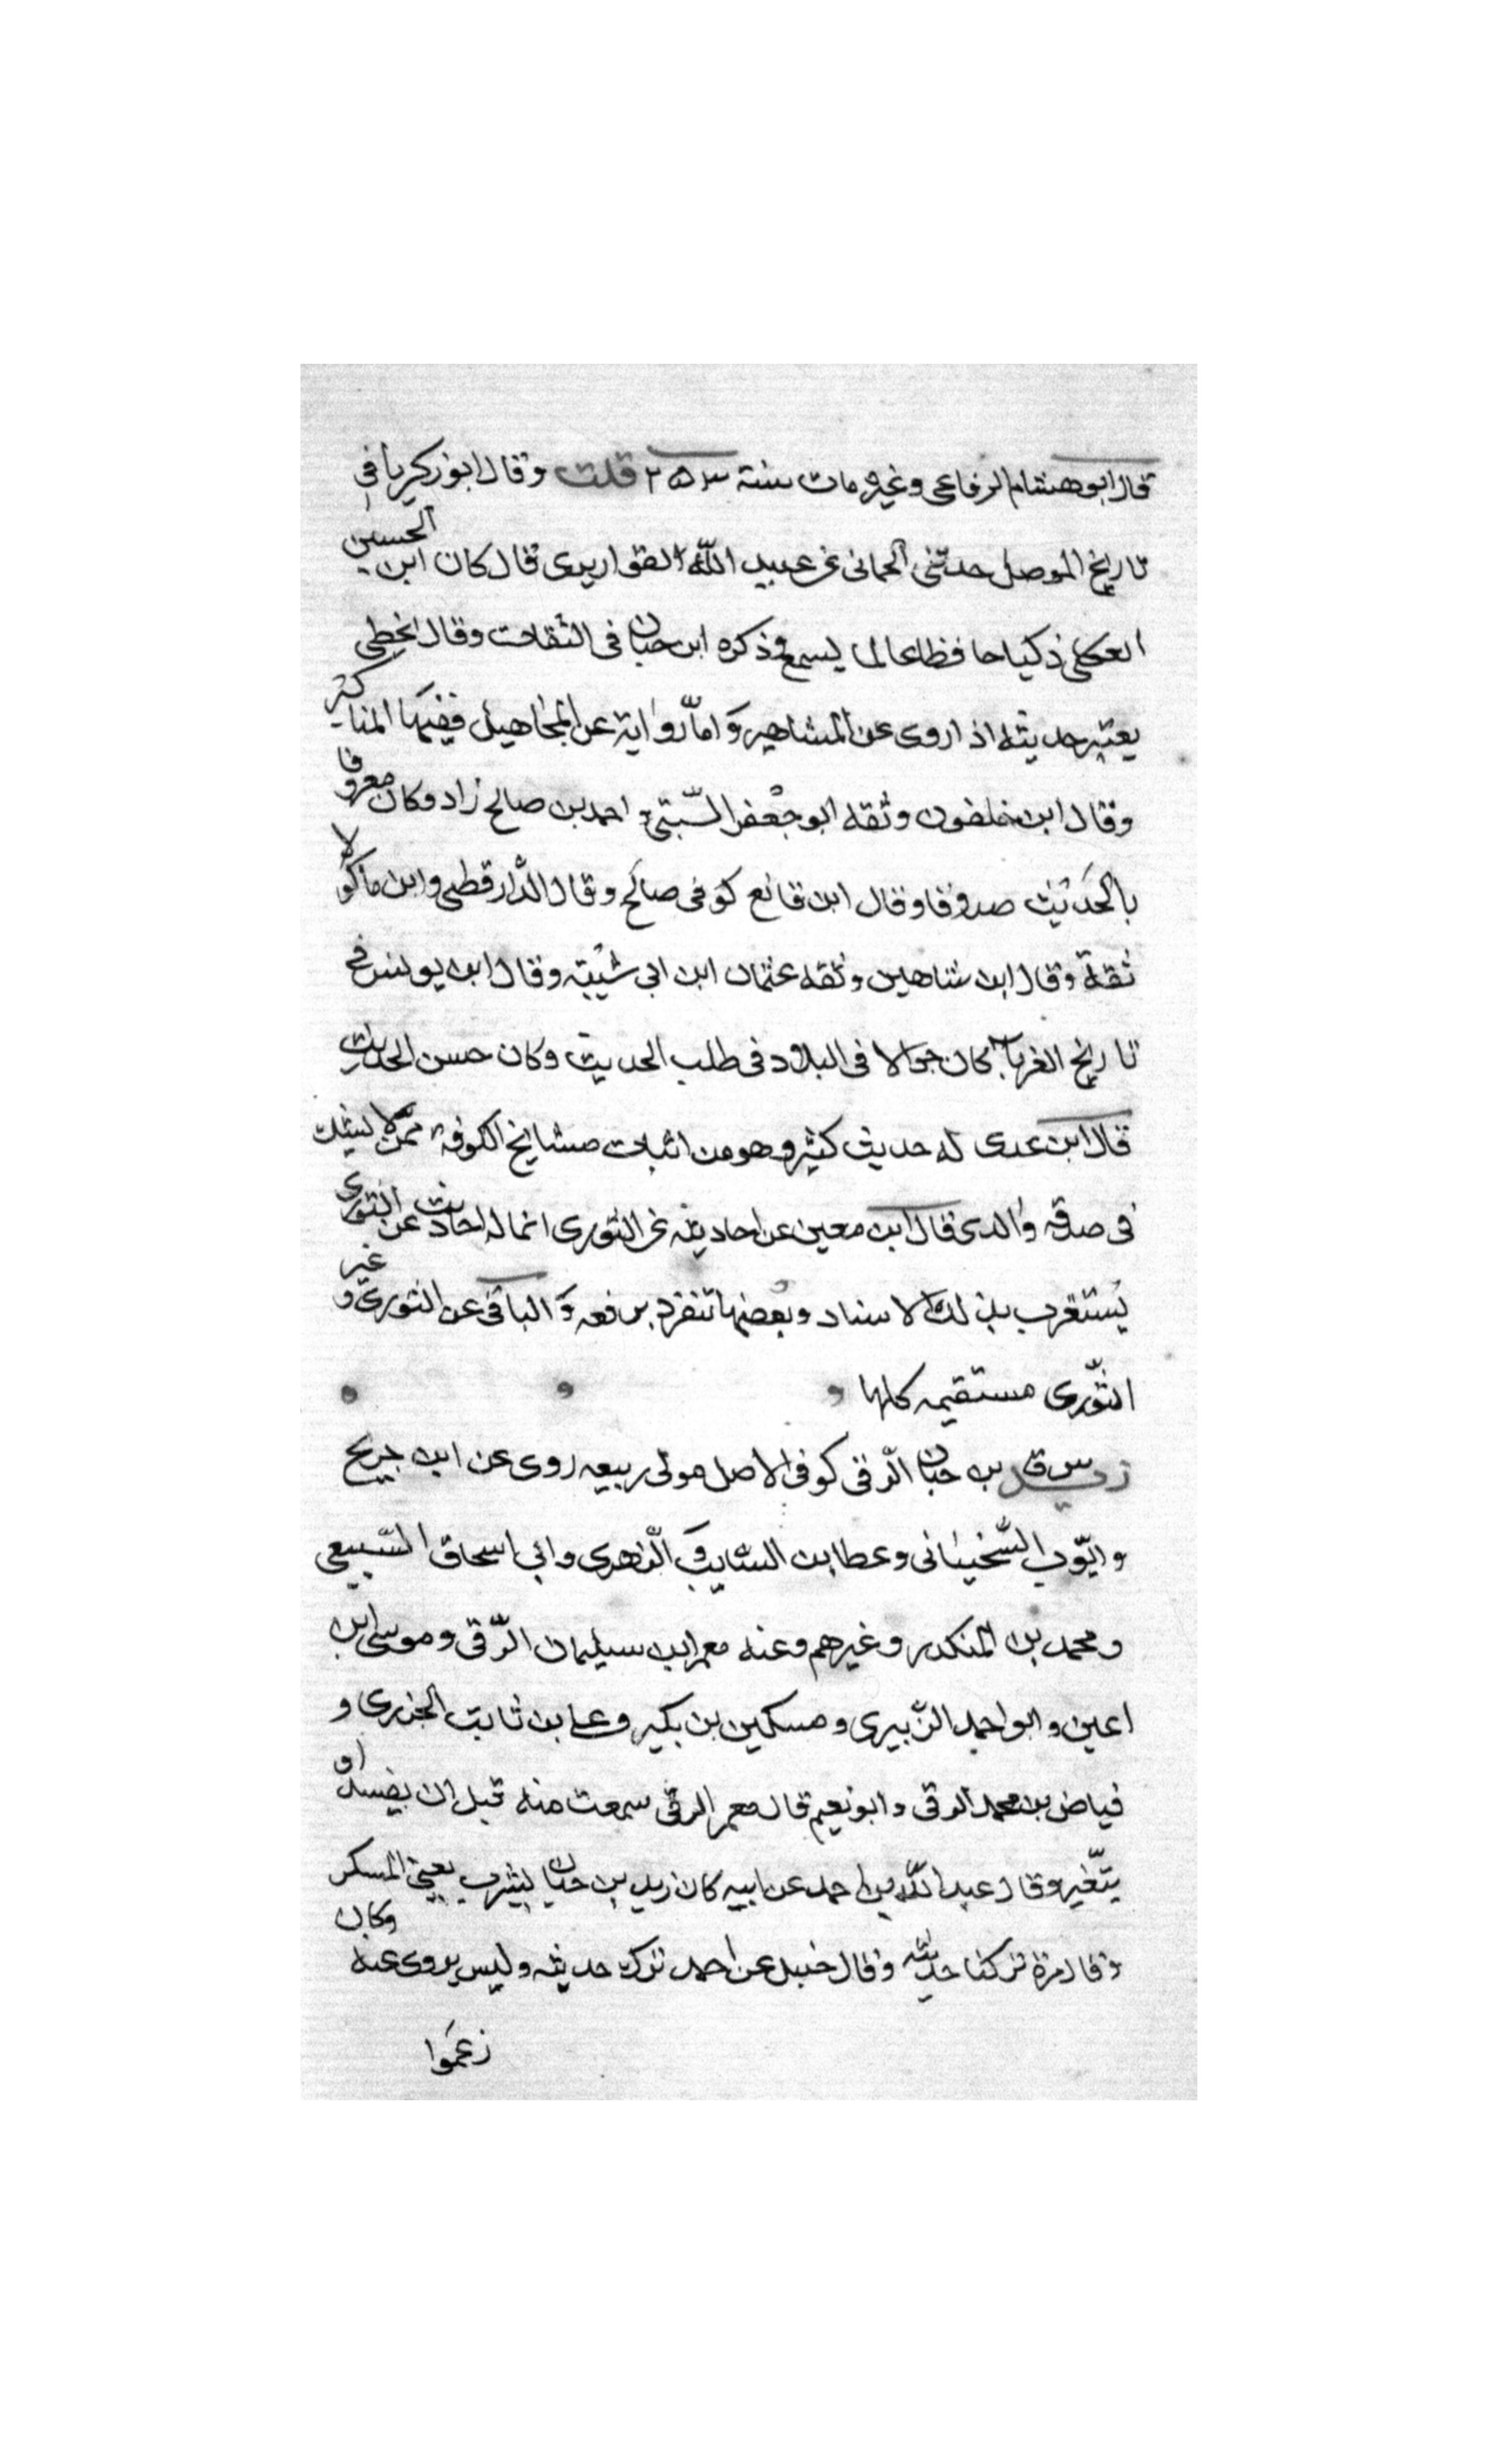 قال ابو هشام الرفاعى وغيره مات سنة ٢٥٣ قلت وقال ابو زكريا فى
تاريخ الموصل حدثنى الحمانى عن عبيد الله القواريرى قال كان ابن الحسين
العكلى ذكيا حافظا عالما يسمع وذكره ابن حبان فى الثقات وقال يخطى
يعتبر حديثه اذا روى عن المشاهير وَاما رواية عن المجاهيل ففيها المناكير
وقال ابن خلفون وثقه ابو جعفر السّبتى و احمد بن صالح زاد وكان معروفا
بالحديث صدوقا وقال ابن قانع كوفى صالح وقال الدّارقطنى وابن ماكولا
ثقة وقال ابن شاهين وثقه عثمان ابن ابى شيبة وقال ابن يونس فى
تاريخ الغرباء كان جوالا فى البلاد فى طلب الحديث وكان حسن الحديث
قال ابن عدى له حديث كثير وهو من اثبات مشايخ الكوفة ممن لا يشك
فى صدقه والذى قال ابن معين عن احاديثه عن الثورى انما له احاديث عن الثورى
يُستغرب بذلك الاسناد وبعضها تنفرد برفعه وَالباقى عن الثورى و غير
الثّورى مستقيمه كلها
زيد بن حبان الرّقى كوفى الاصل مولى ربيعه روى عن ابن جريج
وايّوب السّختيانى وعطا بن السّايب وَ الزهرى وابى اسحاق السّبيعى
ومحمد بن المنكدر وغيرهم وعنه معمر ابن سليمان الرّقى وموسى ابن
اعين وابو احمد الزّبيرى ومسكين بن بكير وعلى بن ثابت الجزرى و
فياض بن محمد الرقى وابو نعيم قال معمر الرقى سمعت منه قبل ان يفسد او
يتغيّر وقال عبد الله بن احمد عن ابيه كان زيد بن حبان يشرب يعنى المسكر
وقال مرة تركنا حديثه وقال حنبل عن احمد ترك حديثه وليس يروى عنه وكان
زعموا